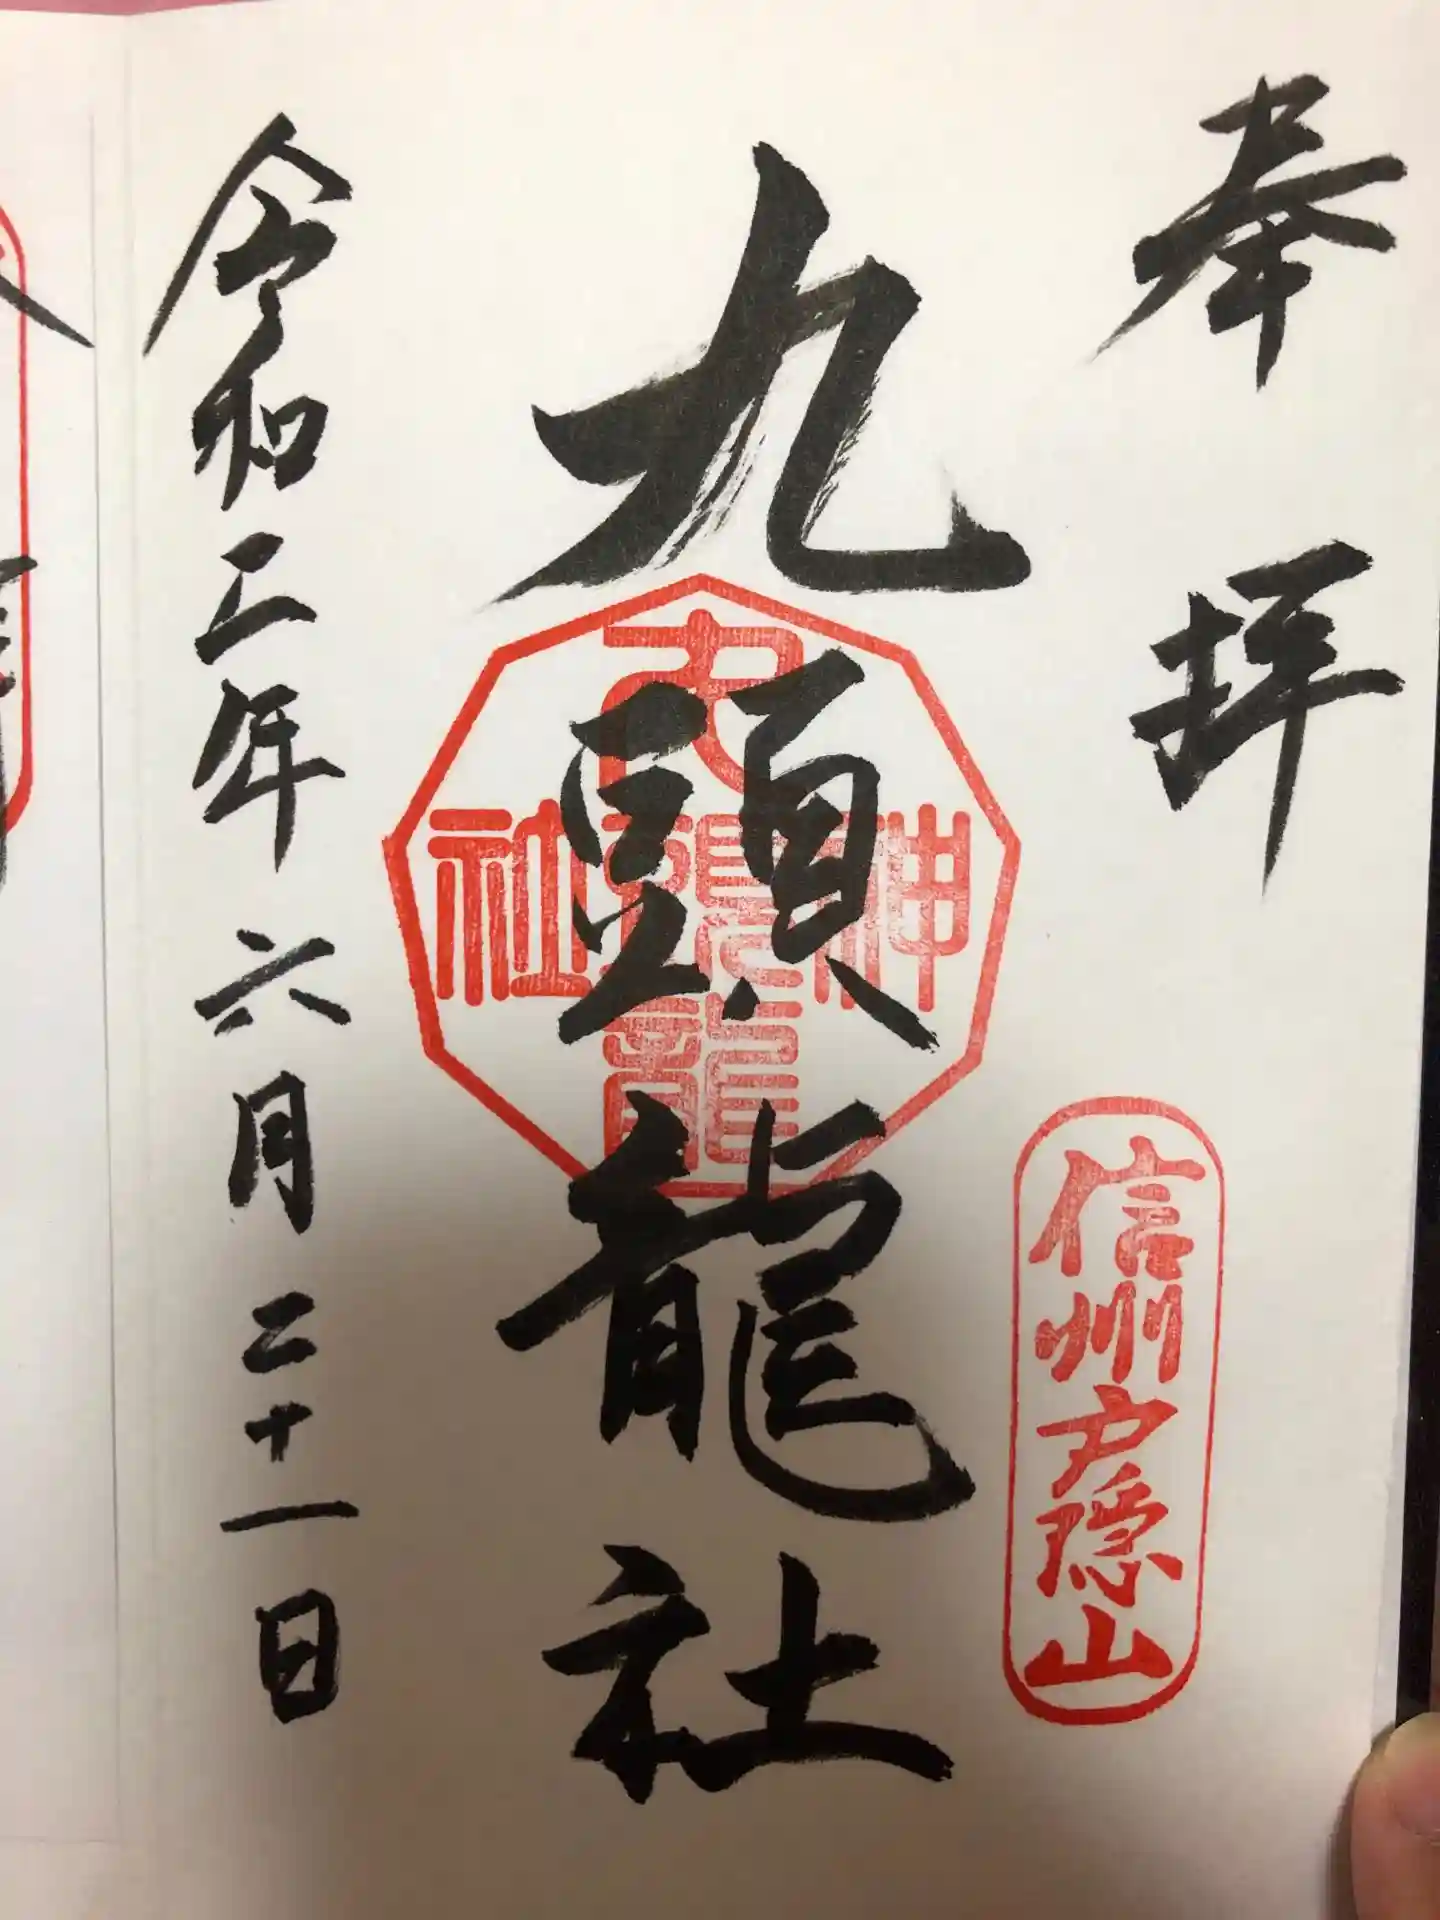 奉拝
信州戸隠山
九頭龍社
九頭龍神社
令和二年六月二十一日